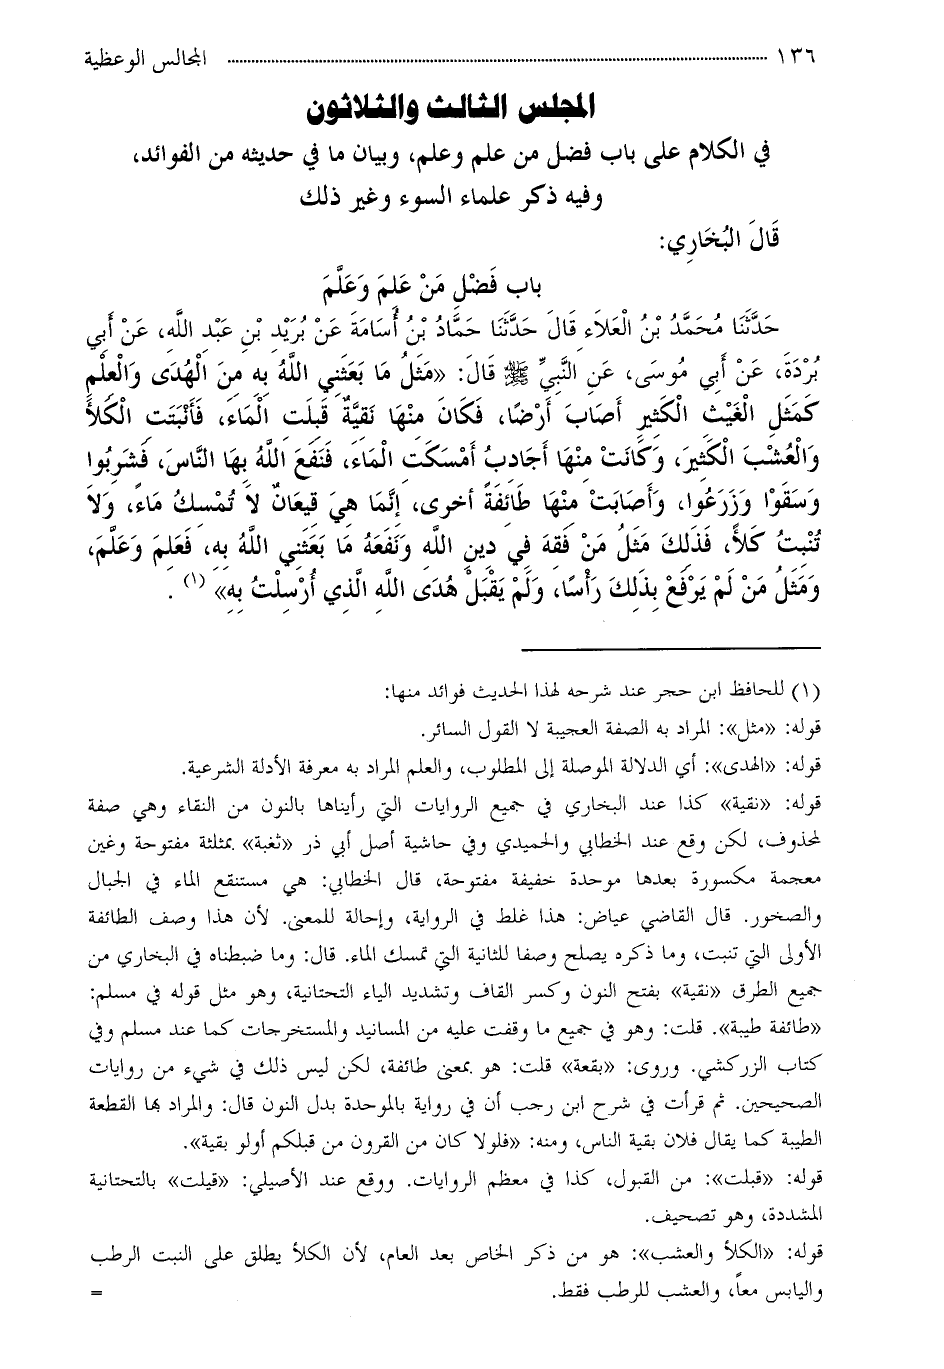 ١٣٦ ........ المجالس الوعظية
المجلس الثالث والثلاثون
في الكلام على باب فضل من علم وعلم، وبيان ما في حديثه من الفوائد،
وفيه ذكر علماء السوء وغير ذلك
قَالَ البُخَارِي:
باب فَضْلِ مَنْ عَلِمَ وَعَلَّمَ
حَدَّثَنَا مُحَمَّدُ بْنُ الْعَلاَءِ قَالَ حَدَّثَنَا حَمَّادُ بْنُ أُسَامَةَ عَنْ بُرَيْدِ بْنِ عَبْدِ اللَّه، عَنْ أَبِي
بُرْدَةَ، عَنْ أَبِي مُوسَى، عَنِ النَّبِيِّ ﷺ قَالَ: «مَثَلُ مَا بَعَثَنِي اللَّهُ بِهِ مِنَ الْهُدَى وَالْعِلْمِ
كَمَثَلِ الْغَيْثِ الْكَثِيرِ أَصَابَ أَرْضًا، فَكَانَ مِنْهَا نَقِيَّةٌ قَبِلَتِ الْمَاءَ، فَأَنْبَتَتِ الْكَلأَ
وَالْعُشْبَ الْكَثِيرَ، وَكَانَتْ مِنْهَا أَجَادِبُ أَمْسَكَتِ الْمَاءَ، فَنَفَعَ اللَّهُ بِهَا النَّاسَ، فَشَرِبُوا
وَسَقَوْا وَزَرَعُوا، وَأَصَابَتْ مِنْهَا طَائِفَةً أخرى، إِنَّمَا هِيَ قِيعَانٌ لاَ تُمْسِكُ مَاءً، وَلاَ
تُنْبِتُ كَلأً، فَذَلِكَ مَثَلُ مَنْ فَقِهَ فِي دِينِ اللَّهِ وَنَفَعَهُ مَا بَعَثَنِي اللَّهُ بِهِ، فَعَلِمَ وَعَلَّمَ،
وَمَثَلُ مَنْ لَمْ يَرْفَعْ بِذَلِكَ رَأْسًا، وَلَمْ يَقْبَلْ هُدَى اللَّهِ الَّذِي أُرْسِلْتُ بِهِ» (١) .
(١) للحافظ ابن حجر عند شرحه لهذا الحديث فوائد منها:
قوله: «مثل»: المراد به الصفة العجيبة لا القول السائر.
قوله: «الهدى»: أي الدلالة الموصلة إلى المطلوب، والعلم المراد به معرفة الأدلة الشرعية.
قوله: «نقية» كذا عند البخاري في جميع الروايات التي رأيناها بالنون من النقاء وهي صفة
لمحذوف، لكن وقع عند الخطابي والحميدي وفي حاشية أصل أبي ذر «ثغبة» بمثلثة مفتوحة وغين
معجمة مكسورة بعدها موحدة خفيفة مفتوحة، قال الخطابي: هي مستنقع الماء في الجبال
والصخور. قال القاضي عياض: هذا غلط في الرواية، وإحالة للمعنى. لأن هذا وصف الطائفة
الأولى التي تنبت، وما ذكره يصلح وصفا للثانية التي تمسك الماء. قال: وما ضبطناه في البخاري من
جميع الطرق «نقية» بفتح النون وكسر القاف وتشديد الياء التحتانية، وهو مثل قوله في مسلم:
«طائفة طيبة». قلت: وهو في جميع ما وقفت عليه من المسانيد والمستخرجات كما عند مسلم وفي
كتاب الزركشي. وروى: «بقعة» قلت: هو بمعنى طائفة، لكن ليس ذلك في شيء من روايات
الصحيحين. ثم قرأت في شرح ابن رجب أن في رواية بالموحدة بدل النون قال: والمراد بها القطعة
الطيبة كما يقال فلان بقية الناس، ومنه: «فلولا كان من القرون من قبلكم أولو بقية».
قوله: «قبلت»: من القبول، كذا في معظم الروايات. ووقع عند الأصيلي: «قيلت» بالتحتانية
المشددة، وهو تصحيف.
قوله: «الكلأ والعشب»: هو من ذكر الخاص بعد العام، لأن الكلأ يطلق على النبت الرطب
واليابس معاً، والعشب للرطب فقط. =